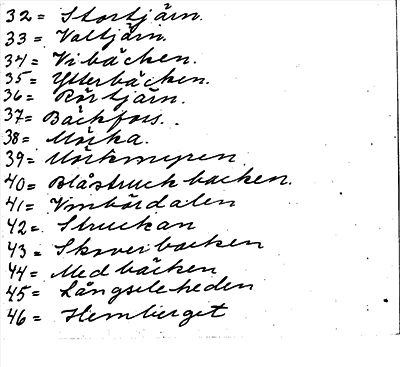 32 = Stortjärn.
33 = Valtjärn.
34 = Vibäcken.
35 = Ytterbäcken.
36 = Rörtjärn.
37 = Bäckfors.
38 = Mörka.
39 = Mörkmyren
40 = Blåstruckbacken.
41 = Vinbärdalen
42 = Struckan
43 = Skaverbacken
44 = Medbäcken
45 = Långseleheden
46 = Hemberget